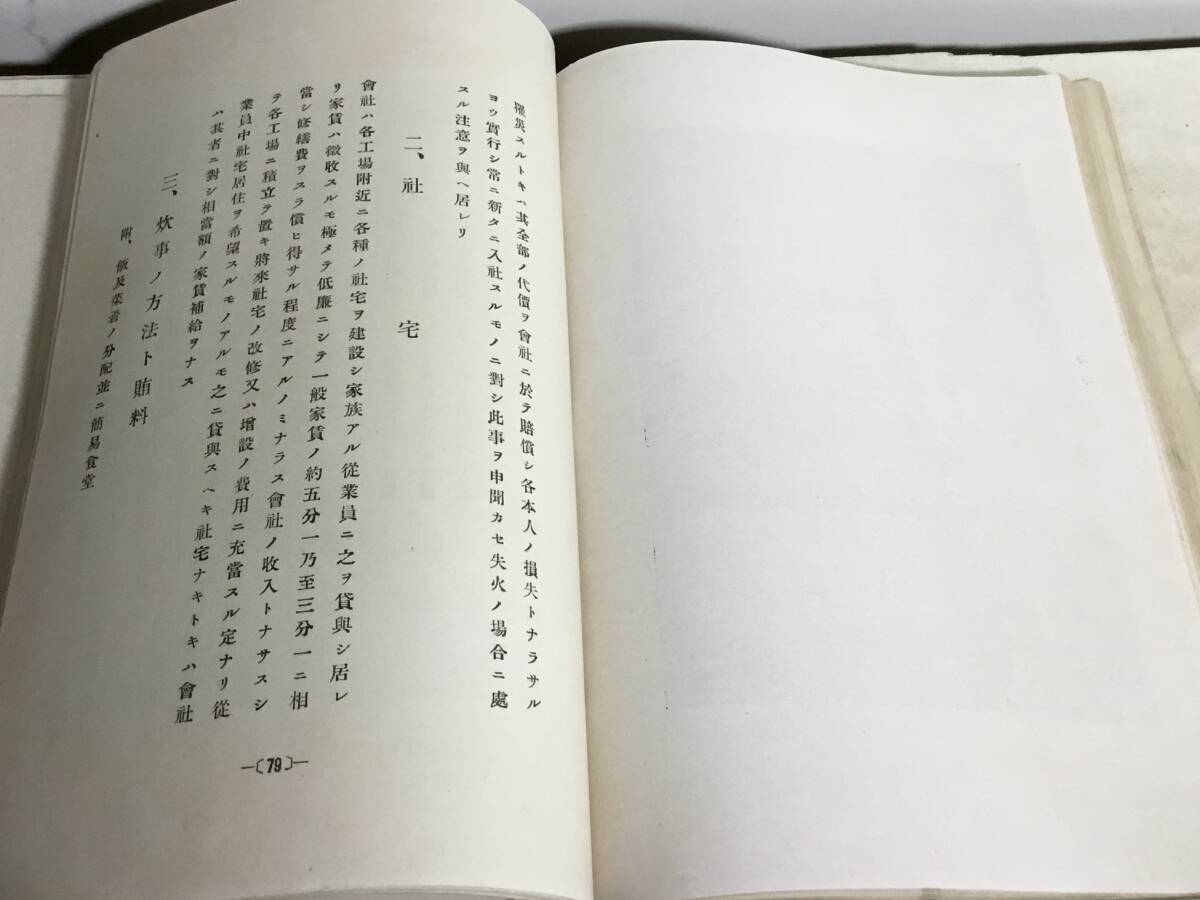 罹災スルトキハ其全部ノ代償ヲ會社ニ於テ賠償シ各本人ノ損失トナラサル
ヨウ實行シ常ニ新タニ入社スルモノニ對シ此事ヲ申聞カセ失火ノ場合ニ處
スル注意ヲ與ヘ居レリ
二、社宅
會社ハ各工場附近ニ各種ノ社宅ヲ建設シ家族アル從業員ニ之ヲ貸與シ居レ
リ家賃ハ徴收スルモ極メテ低廉ニシテ一般家賃ノ約五分一乃至三分一ニ相
當シ修繕費ヲスラ償ヒ得サル程度ニアルノミナラス會社ノ收入トナサスシ
テ各工場ニ積立テ置キ將來社宅ノ改修又ハ増設ノ費用ニ充當スル定ナリ從
業員中社宅居住ヲ希望スルモノアルモ之ニ貸與スヘキ社宅ナキトキハ會社
ハ其者ニ對シ相當額ノ家賃補給ヲナス
三、炊事ノ方法ト賄料
附、飯及菜肴ノ分配並ニ簡易食堂
—〔79〕—